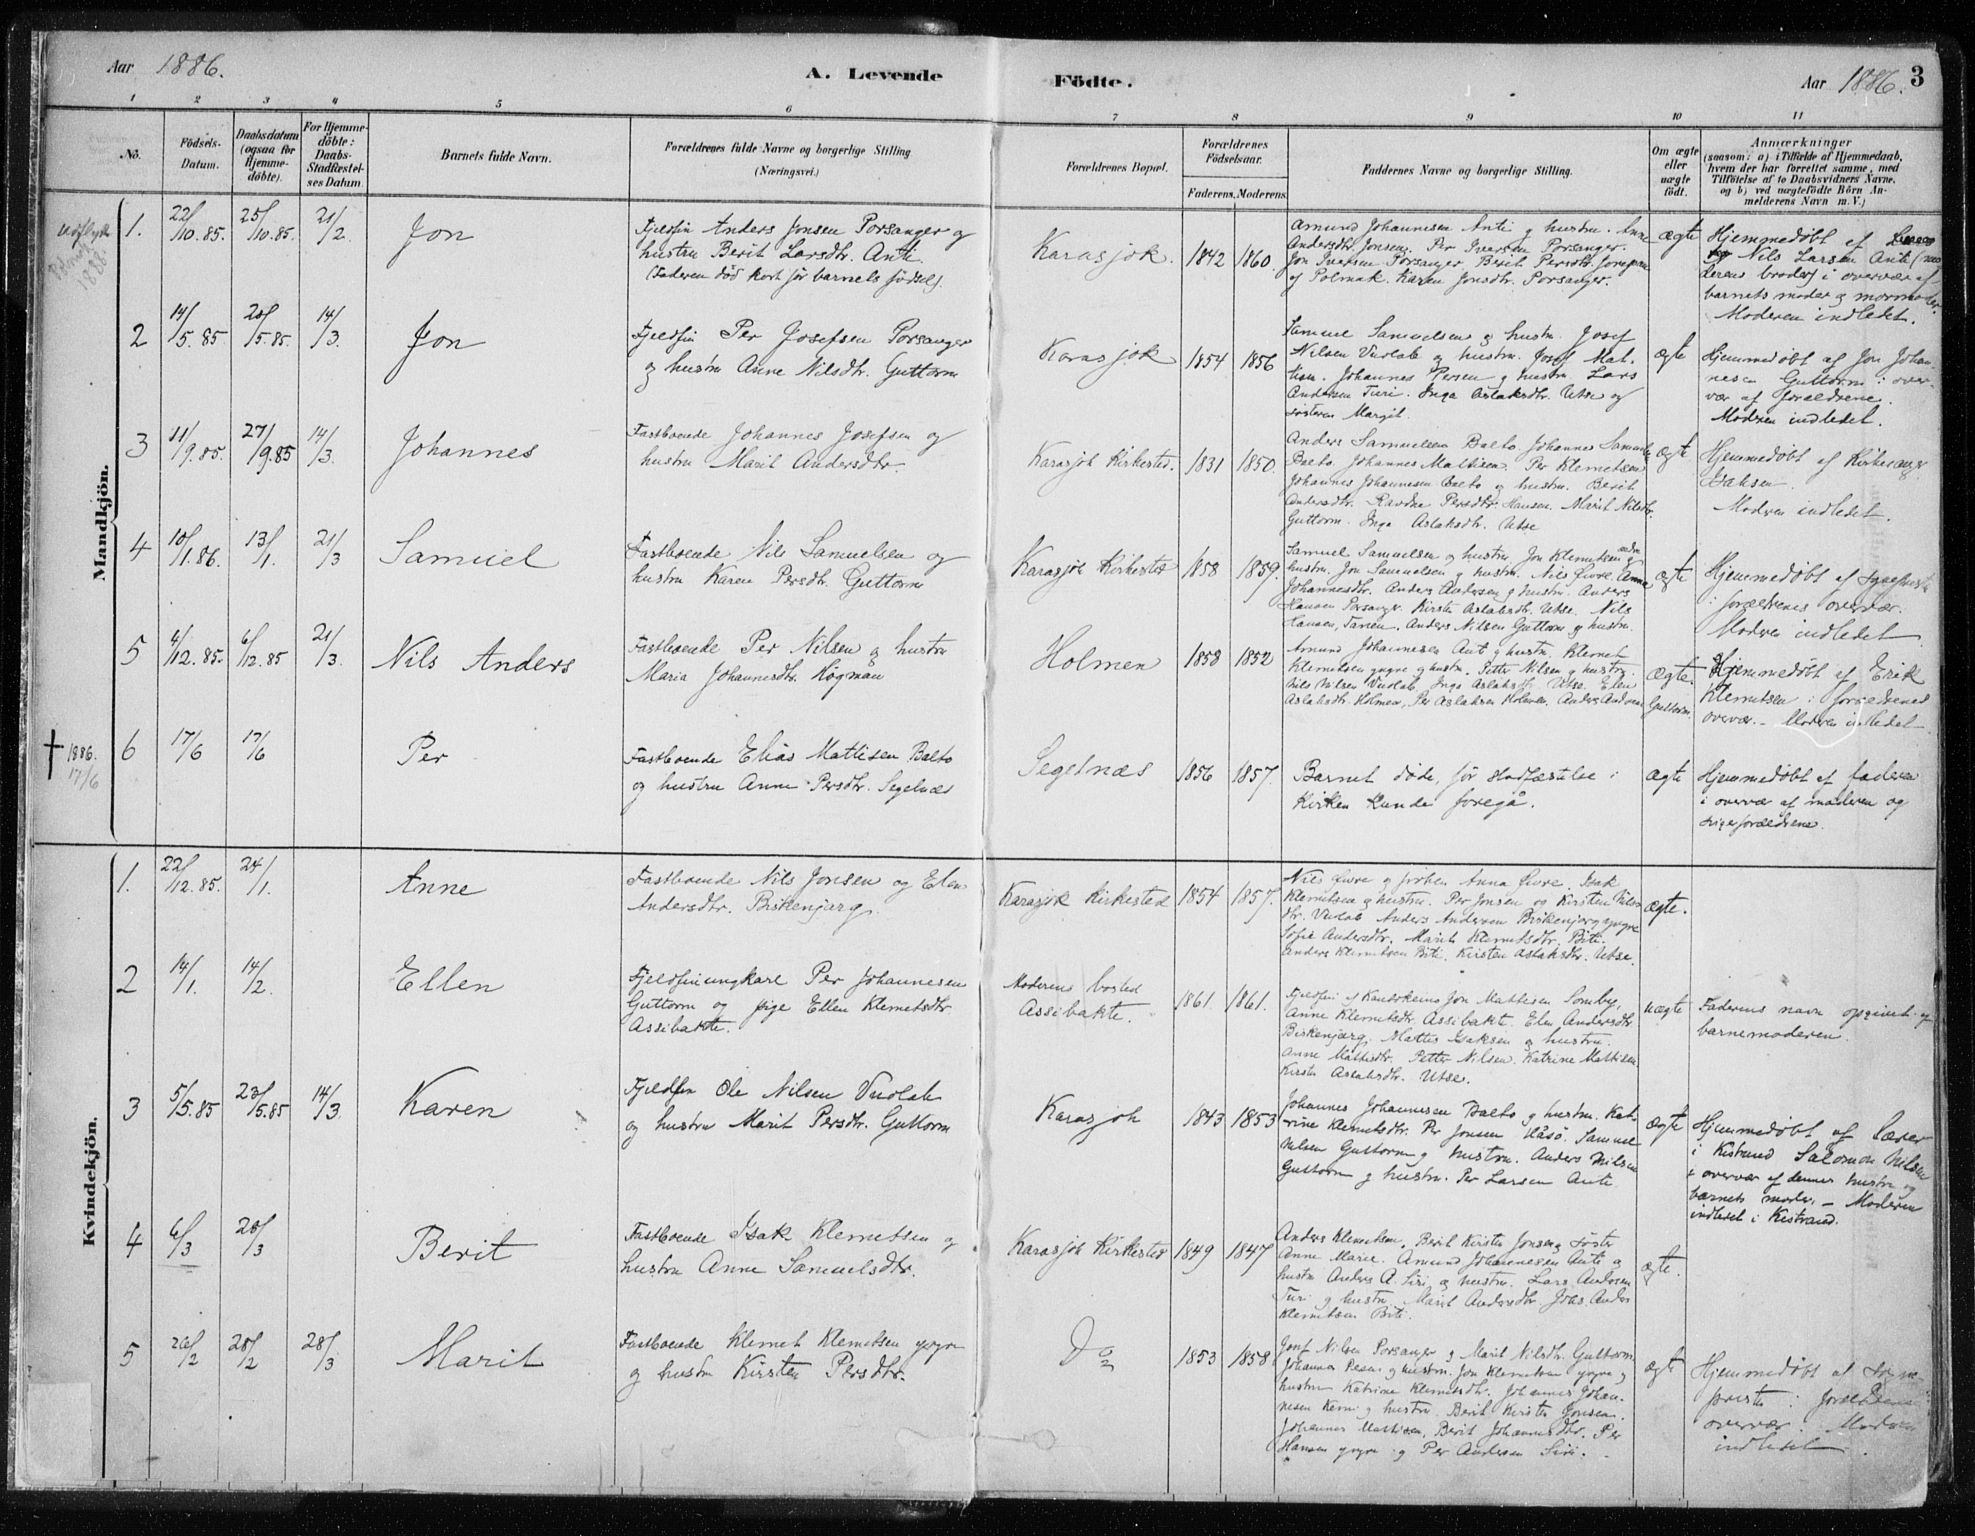 Aar 1886.
A. Levende
Födte.
Aar 1886.
3
1 2 3 4 5 6 7 8 9 10 11
No.
Födsels-
Datum.
Daabsdatum
(ogsaa for
Hjemme-
döbte).
For Hjemme-
döbte:
Daabs-
Stadfæstel-
ses Datum.
Barnets fulde Navn.
Forældrenes fulde Navne og borgerlige Stilling
(Næringsvei.)
Forældrenes Bopæl.
Forældrenes
Födselsaar.
Faderens. Moderens.
Faddernes Navne og borgerlige Stilling.
Om ægte
eller
uægte
födt.
Anmærkninger
(saasom: a) i Tilfælde af Hjemmedaab,
hvem der har forrettet samme, med
Tilföielse af to Daabsvidners Navne,
og b) ved uægtefödte Börn An-
melderens Navn m. V.)
Mandkjön.
1888.
1. 22/10.85. 25/10.85. 21/2
Jon
Fjeldfin Anders Jonsen Porsanger og
hustru Berit Larsdtr. Anti.
(Faderen död kort för barnets födsel).
Karasjok. 1842 1860.
Amund Johannesen Anti og hustru. Anne
Andersdtr. Jonsen. Per Iversen Porsanger.
Jon Porsanger Berit Persdtr.
af Polmak. Karen Jonsdtr. Porsanger.
ægte
Hjemmedöbt af
Nils Larsen Anti (mo
derens broder) i overvær af
barnets moder og mormoder.
Moderen indledet.
2 14/5.85. 20/5.85. 14/3.
Jon
Fjeldfin Per Josefsen Porsanger
og hustru Anne Nilsdtr. Guttorm
Karasjok 1854 1856
Samuel Samuelsen og hustru. Josef
Nilsen Vuolab og hustru. Josef Mat-
tisen. Johannes Persen og hustru. Lars
Andersen Turi. Inga Aslaksdtr. Utse og
søsteren Margit.
ægte
Hjemmedöbt af Jon Johan-
nesen Guttorm i over-
vær af forældrene.
Modren indledet.
3 11/9.85. 27/9.85 14/3.
Johannes
Fastboende Johannes Josefsen og
hustru Marit Andersdtr.
Karasjok Kirkested. 1831 1850.
Anders Samuelsen Balto Johannes Samuelsen
Balto. Johannes Mathisen. Per Klemetsen
Johannes Johannesen Balto og hustru. Berit
Andersdtr. Ravdna Persdtr. Hansen. Marit Nilsdtr.
Guttorm. Inga Aslaksdtr. Utse
ægte
Hjemmedöbt af Kirkesanger
Isaksen.
Modren indledet.
4 10/1.86. 13/1. 21/3
Samuel
Fastboende Nils Samuelsen og
hustru Karen Persdtr. Guttorm
Karasjok Kirkested 1858 1859.
Samuel Samuelsen og hustru Jon Klemetsen ældre og
hustru. Jon Samuelsen og hustru. Nils Øvre. Anna
Johannesdtr. Anders Andersen og hustru. Anders
Hansen Porsanger. Kirsti Aslaksdtr. Utse. Nils
Hansen, Tanen. Anders Nilsen Guttorm og hustru.
ægte
Hjemmedöbt af Sognepræsten
i forældrenes overvær.
Modren indledet.
5 4/12.85. 6/12.85 21/3.
Nils Anders
Fastboende Per Nilsen og hustru
Maria Johannesdtr. Högman
Holmen 1858 1852
Amund Johannesen Anti og hustru. Klemet
Klemetsen yngre og hustru. Petter Nilsen og hustru.
Nils Nilsen Vuolab. Inga Aslaksdtr. Utse. Elen
Aslaksdtr. Holmen, Per Aslaksen Holmen. Anders Andersen
Guttorm.
ægte.
Hjemmedöbt af Erik
Klemetsen i forældrenes
overvær. – Modren indledet
† 1886. 17/6
6 17/6 17/6
Per
Fastboende Elias Mattisen Balto
og hustru Anne Persdtr. Segelnæs
Segelnæs 1856 1857.
Barnet döde, för stadfæstelse i
kirken kunde foregå.
ægte
Hjemmedöbt af faderen
i overvær af moderen og
svigerforældrene.
Kvindekjön.
1. 22/12.85. 24/1.
Anne
Fastboende Nils Jonsen og Elen
Andersdtr. Biskenjarg.
Karasjok Kirkested 1854 1857.
Nils Øvre og Anna Øvre. Isak
Klemetsen og hustru. Per Jonsen og Kirsten Nils-
dtr. Vuolab Anders Andersen Biskenjarg yngre
Sofie Andersdtr. Marit Klemetsdtr. Biti.
Anders Klemetsen Biti. Kirsten Aslaksdtr. Utse.
ægte.
2 14/1. 14/2.
Ellen
Fjeldfinungkarl Per Johannesen
Guttorm og pige Ellen Klemetsdtr.
Assibakte.
Moderens bosted
Assibakte. 1861. 1861.
Fjeldfin af Kautokeino Jon Mattisen Somby,
Anne Klemetsdtr. Assibakte. Elen Andersdtr
Biskenjarg. Mattis Isaksen og hustru.
Anne Mattisdtr. Petter Nilsen. Katrine Mattisen
Kirsten Aslaksdtr. Utse.
uægte
Faderens navn opgivet af
barnemoderen.
3 5/5.85 23/5.85 14/3
Karen
Fjeldfin Ole Nilsen Vuolab
og hustru Marit Persdtr. Guttorm
Karasjok 1843 1853
Johannes Johannesen Balto og hustru. Kat-
rine Klemetsdtr. Per Jonsen Samuel
Nilsen Guttorm og hustru. Anders Nilsen
Guttorm og hustru. Per Larsen Anti
ægte
Hjemmedöbt af Lærer
i Kistrand Salomon Nilsen
i overvær af dennes hustru og
barnets moder. – Moderen
indledet i Kistrand.
4 6/3 28/3
Berit
Fastboende Isak Klemetsen og
hustru Anne Samuelsdtr.
Karasjok Kirkested 1849 1847
Anders Klemetsen, Berit Kirsten Jonsen og søster
Anne Marie. Amund Johannesen Anti og
hustru Anders A. Siri og hustru. Lars Andersen
Turi og hustru. Marit Andersdtr. Anders
Klemetsen Biti.
ægte.
5 26/2 28/2 28/3
Marit
Fastboende Klemet Klemetsen yngre
og hustru Kirsten Persdtr.
Do 1853 1858
Josef Nilsen Porsanger og Marit Nilsdtr. Guttorm
Johannes Persen og hustru. Jon Klemetsen yngre og
hustru Katrine Klemetsdtr. Johannes Johan-
nesen og hustru. Berit Kirsten Jonsen.
Johannes Mattisen, Berit Johannesdtr. Per
Hansen yngre og Per Andersen Siri.
ægte
Hjemmedöbt af Sogne-
præsten i forældrenes
overvær. Modren
indledet